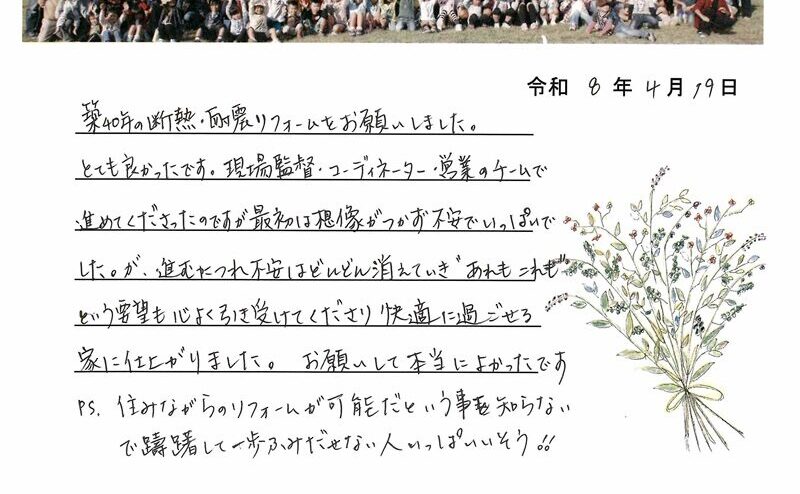 令和 8 年 4 月 19 日
築40年の断熱・耐震リフォームをお願いしました。
とても良かったです。現場監督・コーディネーター・営業のチームで
進めてくださったのですが最初は想像がつかず不安でいっぱいで
した。が、進むにつれ不安はどんどん消えていき"あれもこれも"
という要望も心よく引き受けてくださり快適に過ごせる
家に仕上がりました。 お願いして本当によかったです
PS. 住みながらのリフォームが可能だという事を知らない
で躊躇して一歩ふみだせない人いっぱいいそう!!